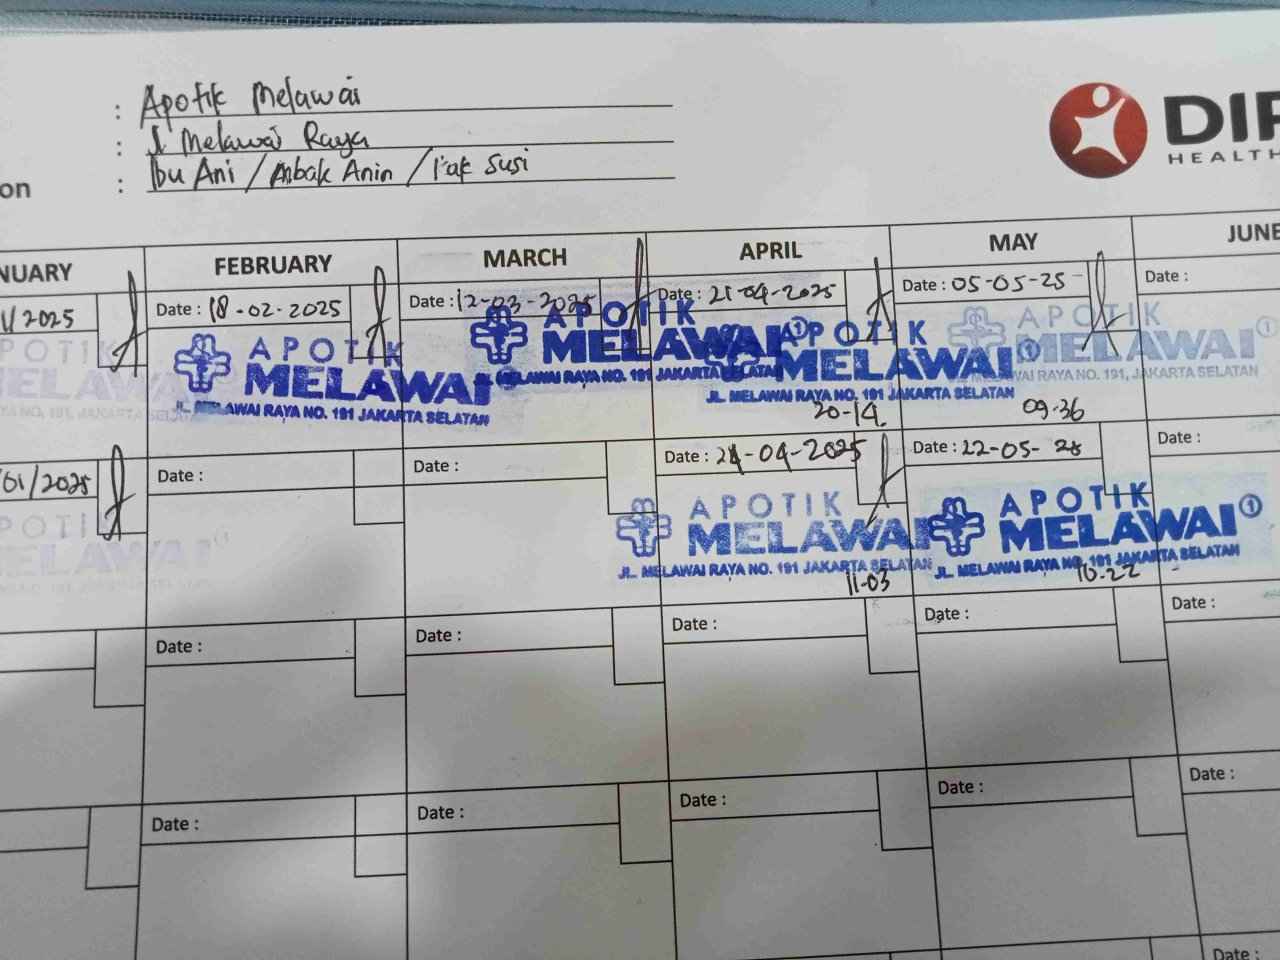 : Apotik Melawai
: Jl Melawai Raya
on : Ibu Ani / Mbak Anin / Pak Susi
DIP
HEALTH
NUARY FEBRUARY MARCH APRIL MAY JUNE
1/2025 Date : 18-02-2025 Date : 12-03-2025 Date : 21-04-2025 Date : 05-05-25 Date :
APOTIK
MELAWAI
JL. MELAWAI RAYA NO. 191 JAKARTA SELATAN
APOTIK
MELAWAI
JL. MELAWAI RAYA NO. 191 JAKARTA SELATAN
APOTIK
MELAWAI
MELAWAI RAYA NO. 191 JAKARTA SELATAN
APOTIK
MELAWAI
JL. MELAWAI RAYA NO. 191 JAKARTA SELATAN
20-14
APOTIK
MELAWAI
RAYA NO. 191, JAKARTA SELATAN
09.36
/01/2025 Date : Date : Date : 24-04-2025 Date : 22-05-25 Date :
APOTIK
APOTIK
MELAWAI
JL. MELAWAI RAYA NO. 191 JAKARTA SELATAN
11-03
APOTIK
MELAWAI
JL. MELAWAI RAYA NO. 191 JAKARTA SELATAN
10.22
Date : Date : Date : Date : Date :
Date : Date : Date : Date : Date :
Date :